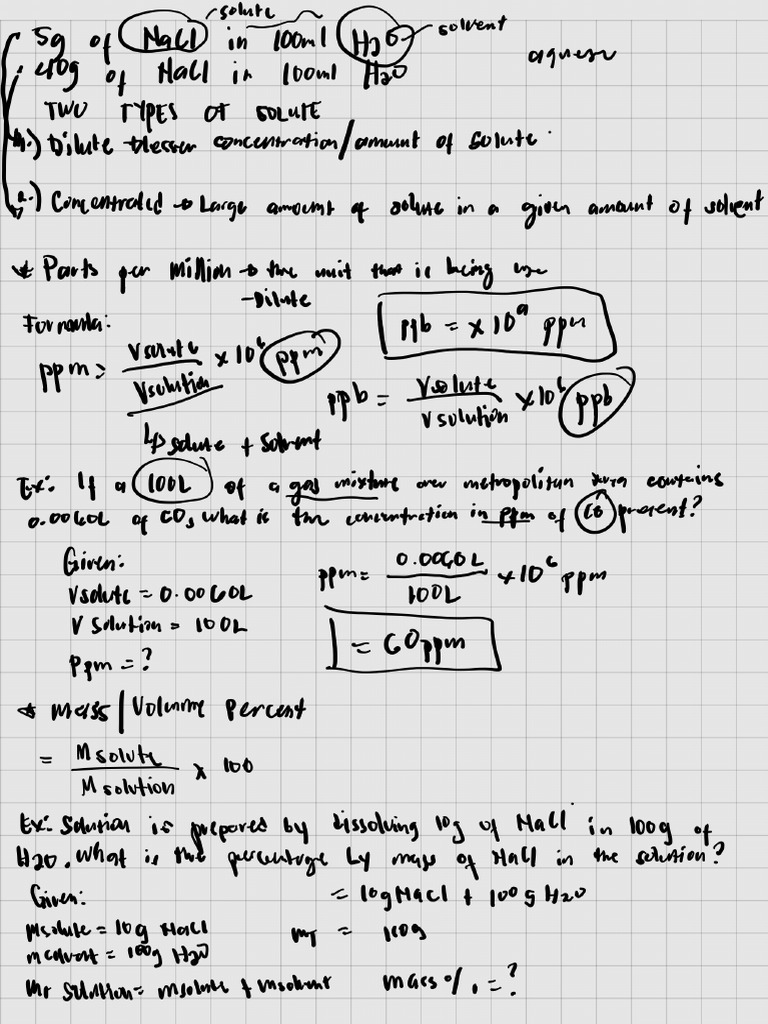 solute
5g of NaCl in 100ml H2O solvent
40g of NaCl in 100ml H2O
TWO TYPES OF SOLUTE
1.) Dilute → lesser concentration/amount of solute
2.) Concentrated → Large amount of solute in a given amount of solvent
* Parts per million → the unit that is being use
- Dilute
Formula:
ppb = × 10⁹ ppm
ppm = Vsolute / Vsolution × 10⁶ ppm
ppb = Vsolute / Vsolution × 10⁶ ppb
↳ solute + solvent
Ex: If a 100L of a gas mixture over metropolitan contains
0.0060L of CO, what is the concentration in ppm of CO present?
Given:
Vsolute = 0.0060L
V solution = 100L
ppm = ?
ppm = 0.0060L / 100L × 10⁶ ppm
= 60ppm
* mass/Volume Percent
= M solute / M solution × 100
Ex: Solution is prepared by dissolving 10g of NaCl in 100g of
H2O. What is the percentage by mass of NaCl in the solution?
Given:
= 10g NaCl + 100g H2O
msolute = 10g NaCl
mT = 110g
msolvent = 100g H2O
mT solution = msolute + msolvent
mass % = ?